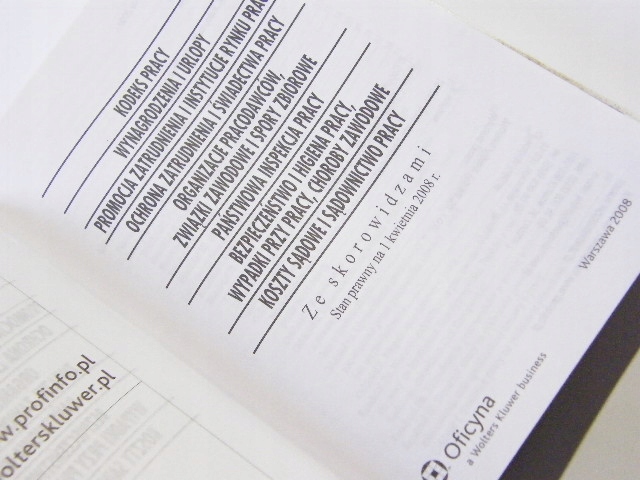 KODEKS PRACY
WYNAGRODZENIA I URLOPY
PROMOCJA ZATRUDNIENIA I INSTYTUCJE RYNKU
OCHRONA ZATRUDNIENIA I ŚWIADECTWA PRACY
ORGANIZACJE PRACODAWCÓW,
ZWIĄZKI ZAWODOWE I SPORY ZBIOROWE
PAŃSTWOWA INSPEKCJA PRACY
BEZPIECZEŃSTWO I HIGIENA PRACY,
WYPADKI PRZY PRACY, CHOROBY ZAWODOWE
KOSZTY SĄDOWE I SĄDOWNICTWO PRACY
Ze skorowidzami
Stan prawny na 1 kwietnia 2008 r.
Warszawa 2008
Oficyna
a Wolters Kluwer business
w.profinfo.pl
olterskluwer.pl